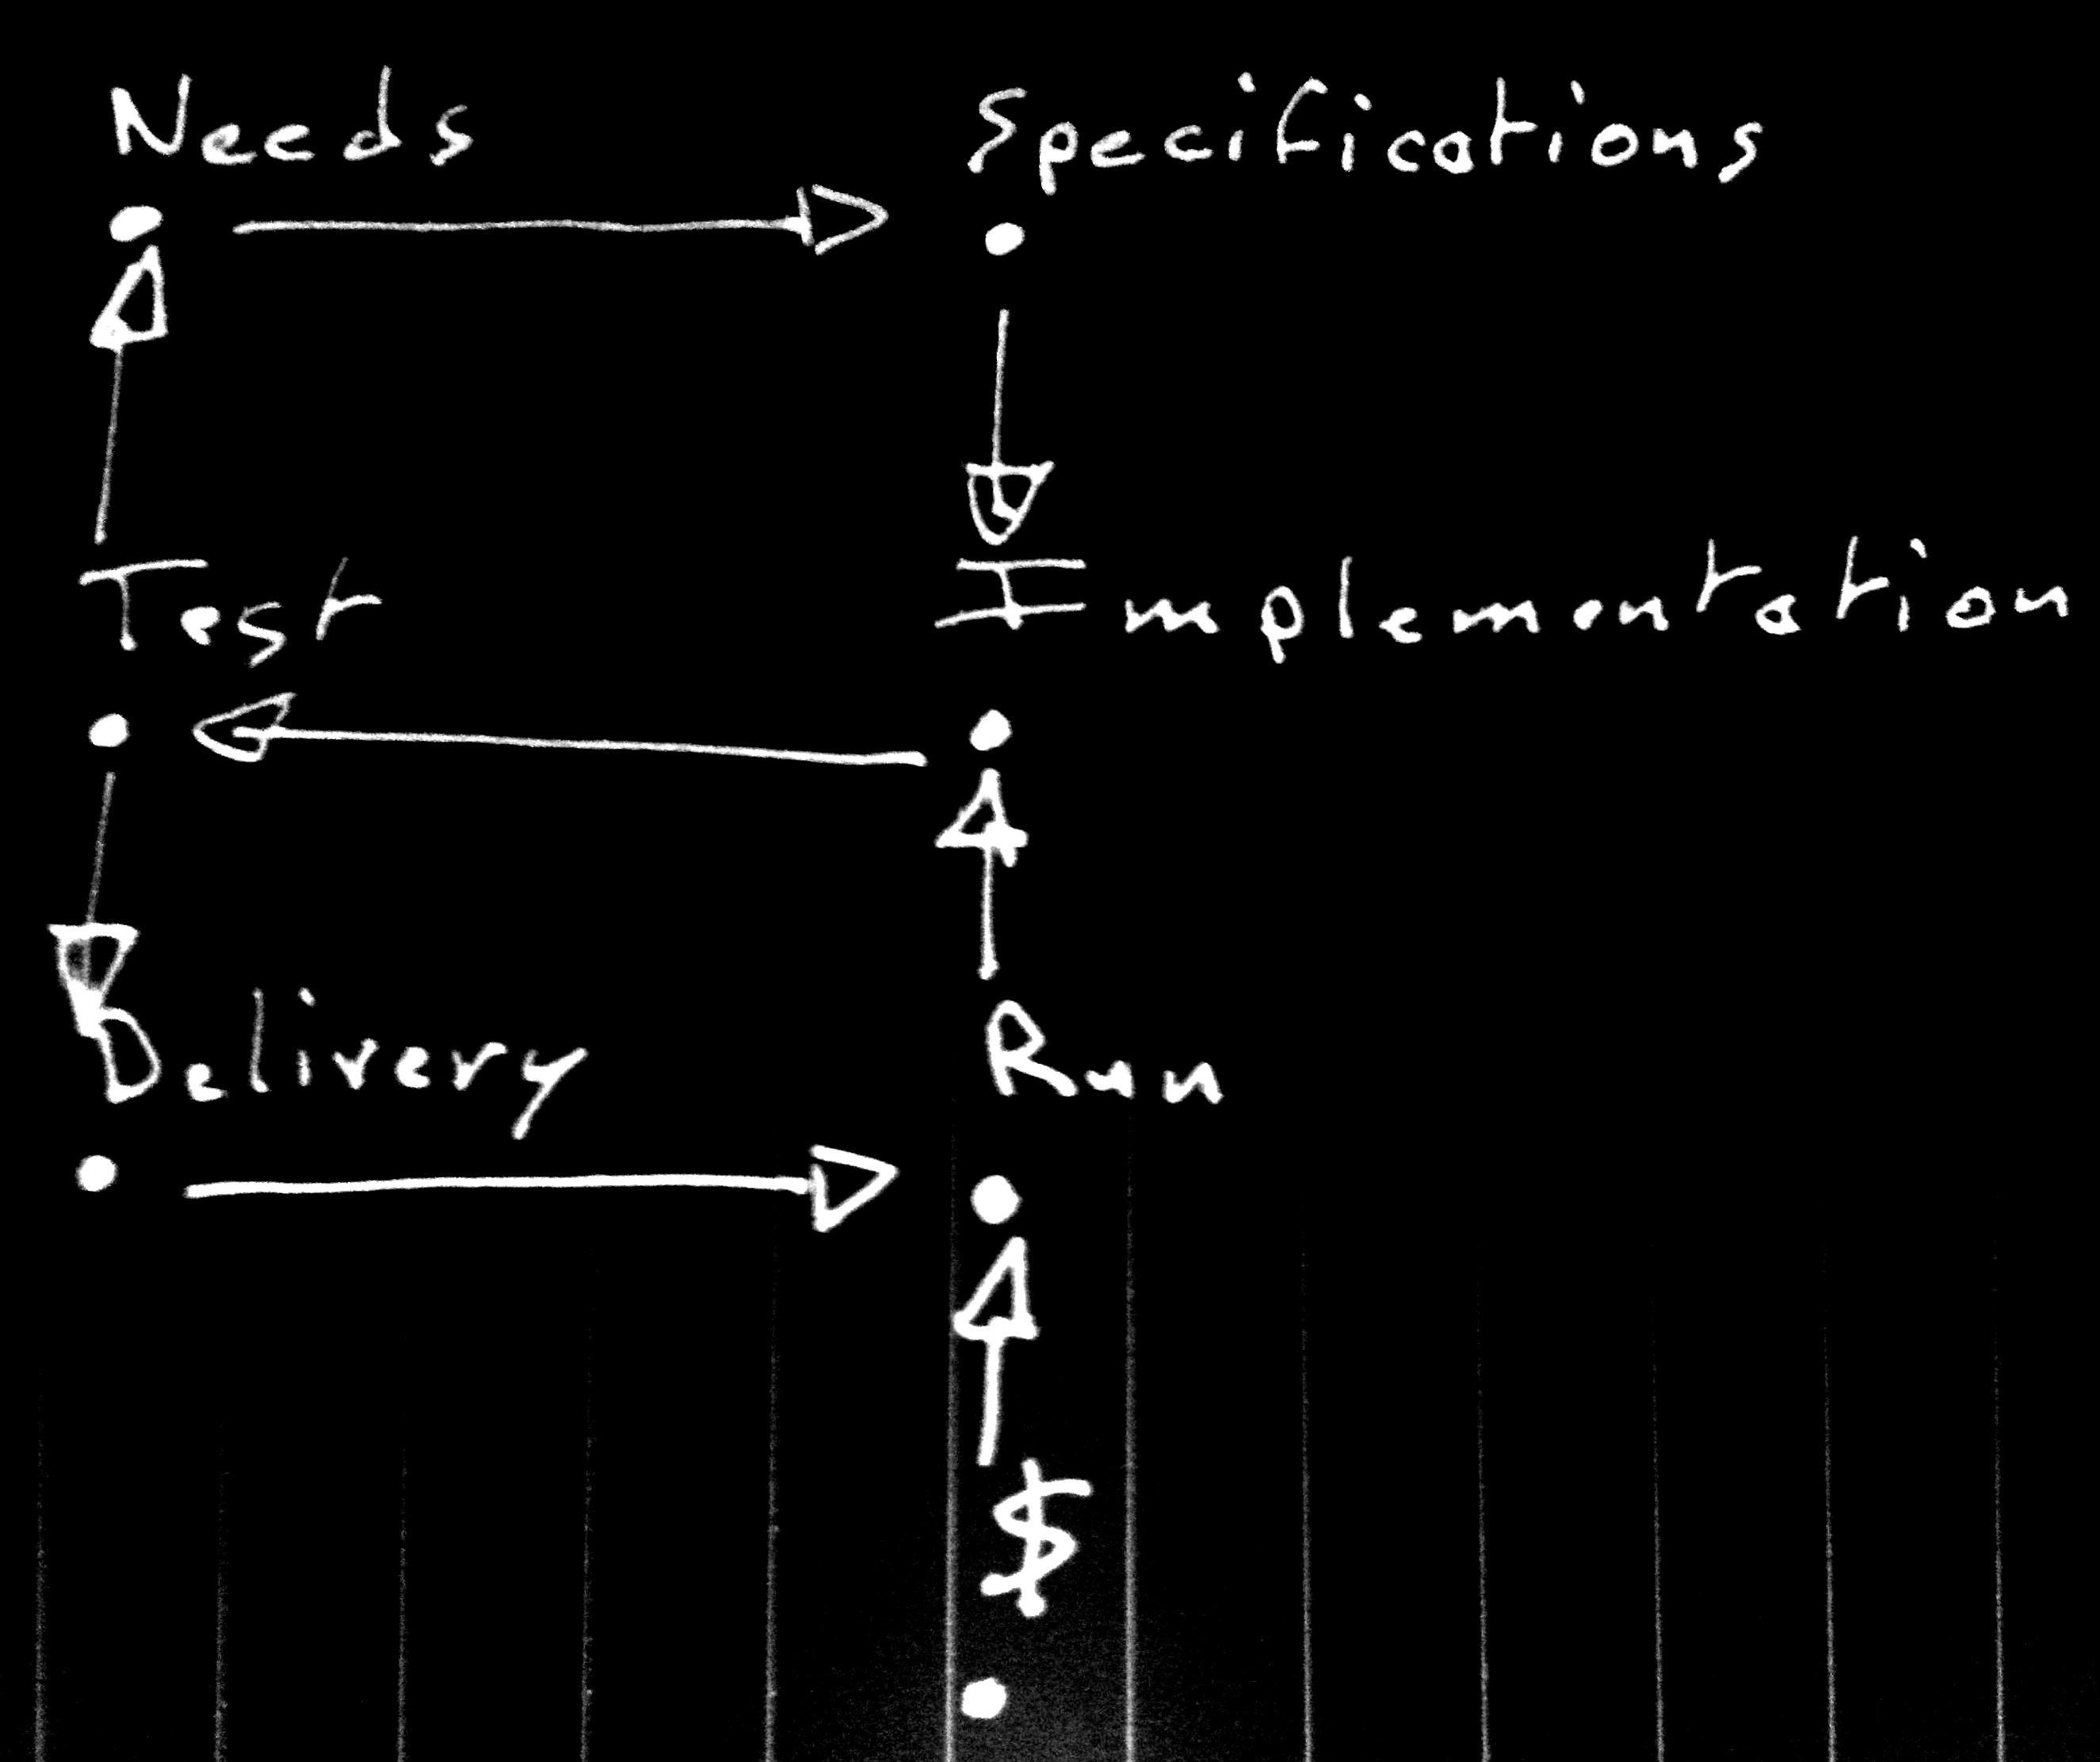 Needs Specifications
Test Implementation
Delivery Run
$